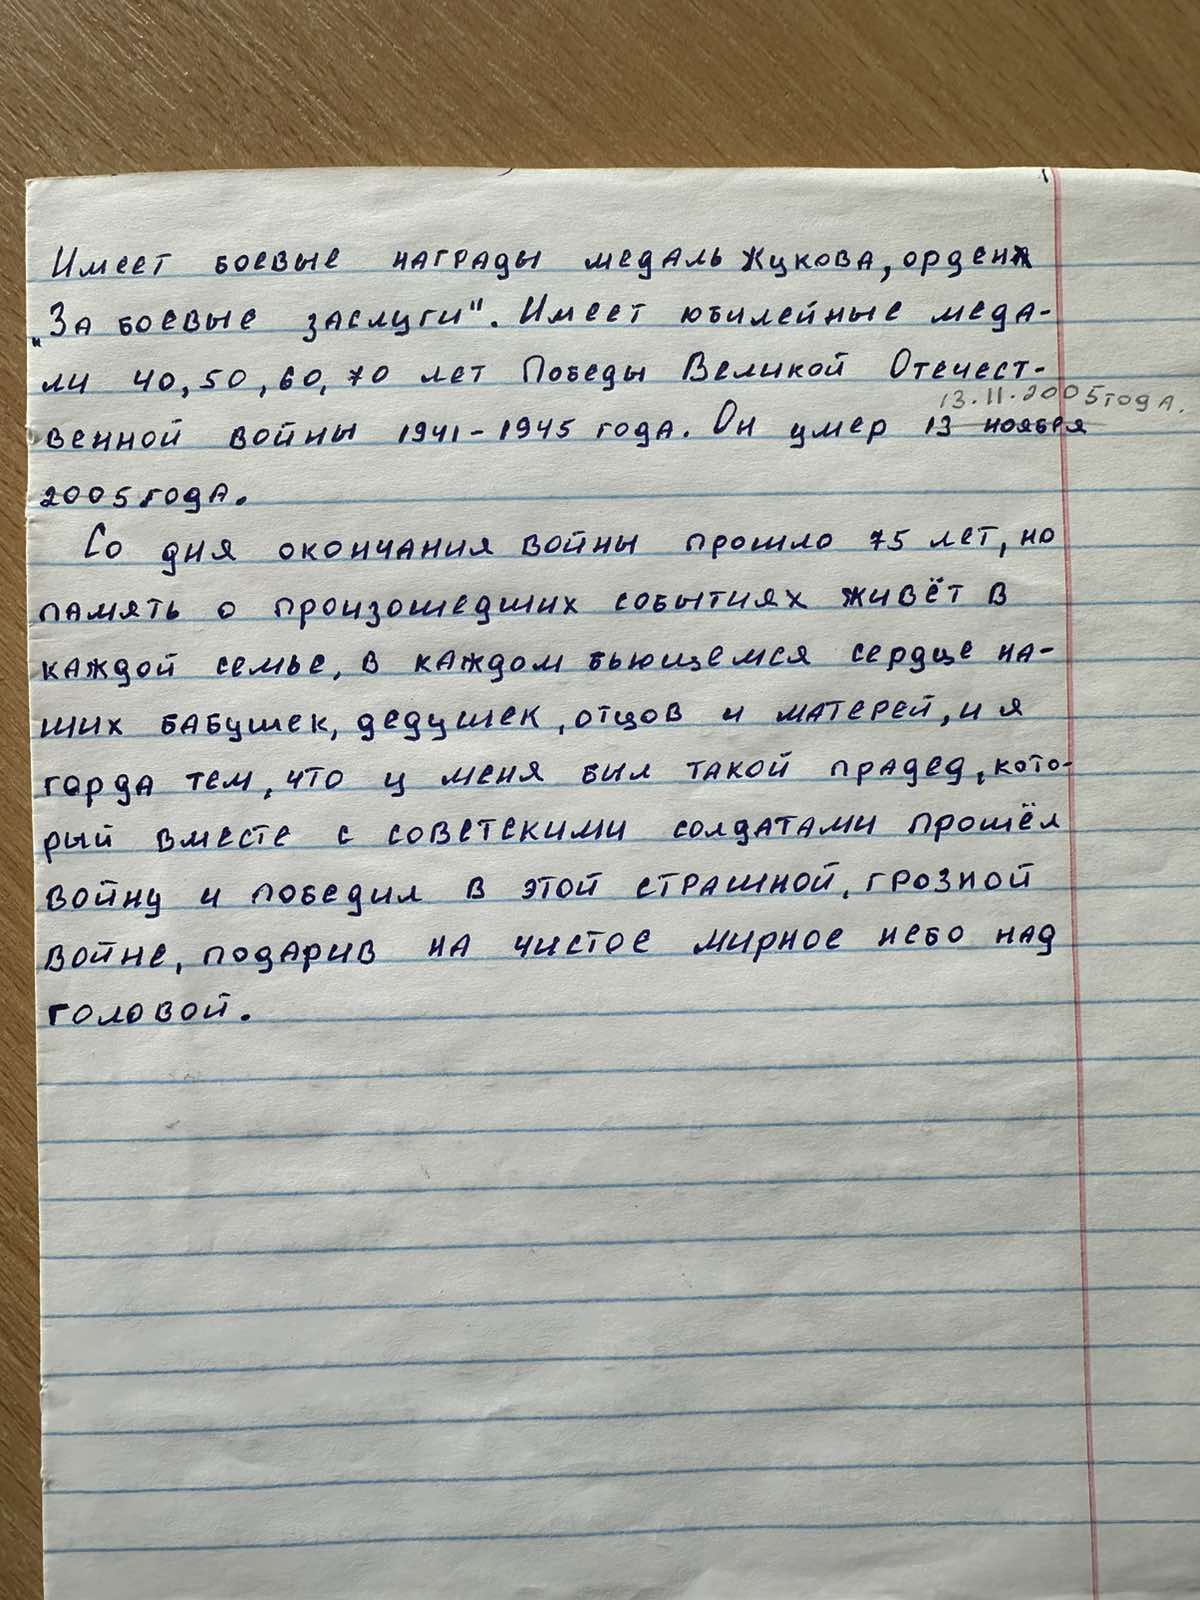 Имеет боевые награды медаль Жукова, орден
„За боевые заслуги". Имеет юбилейные меда-
ли 40, 50, 60, 70 лет Победы Великой Отечест-
13.11.2005 года.
венной войны 1941-1945 года. Он умер 13 ноября
2005 года.
Со дня окончания войны прошло 75 лет, но
память о произошедших событиях живёт в
каждой семье, в каждом бьющемся сердце на-
ших бабушек, дедушек, отцов и матерей, и я
горда тем, что у меня был такой прадед, кото-
рый вместе с советскими солдатами прошёл
войну и победил в этой страшной, грозной
войне, подарив на чистое мирное небо над
головой.